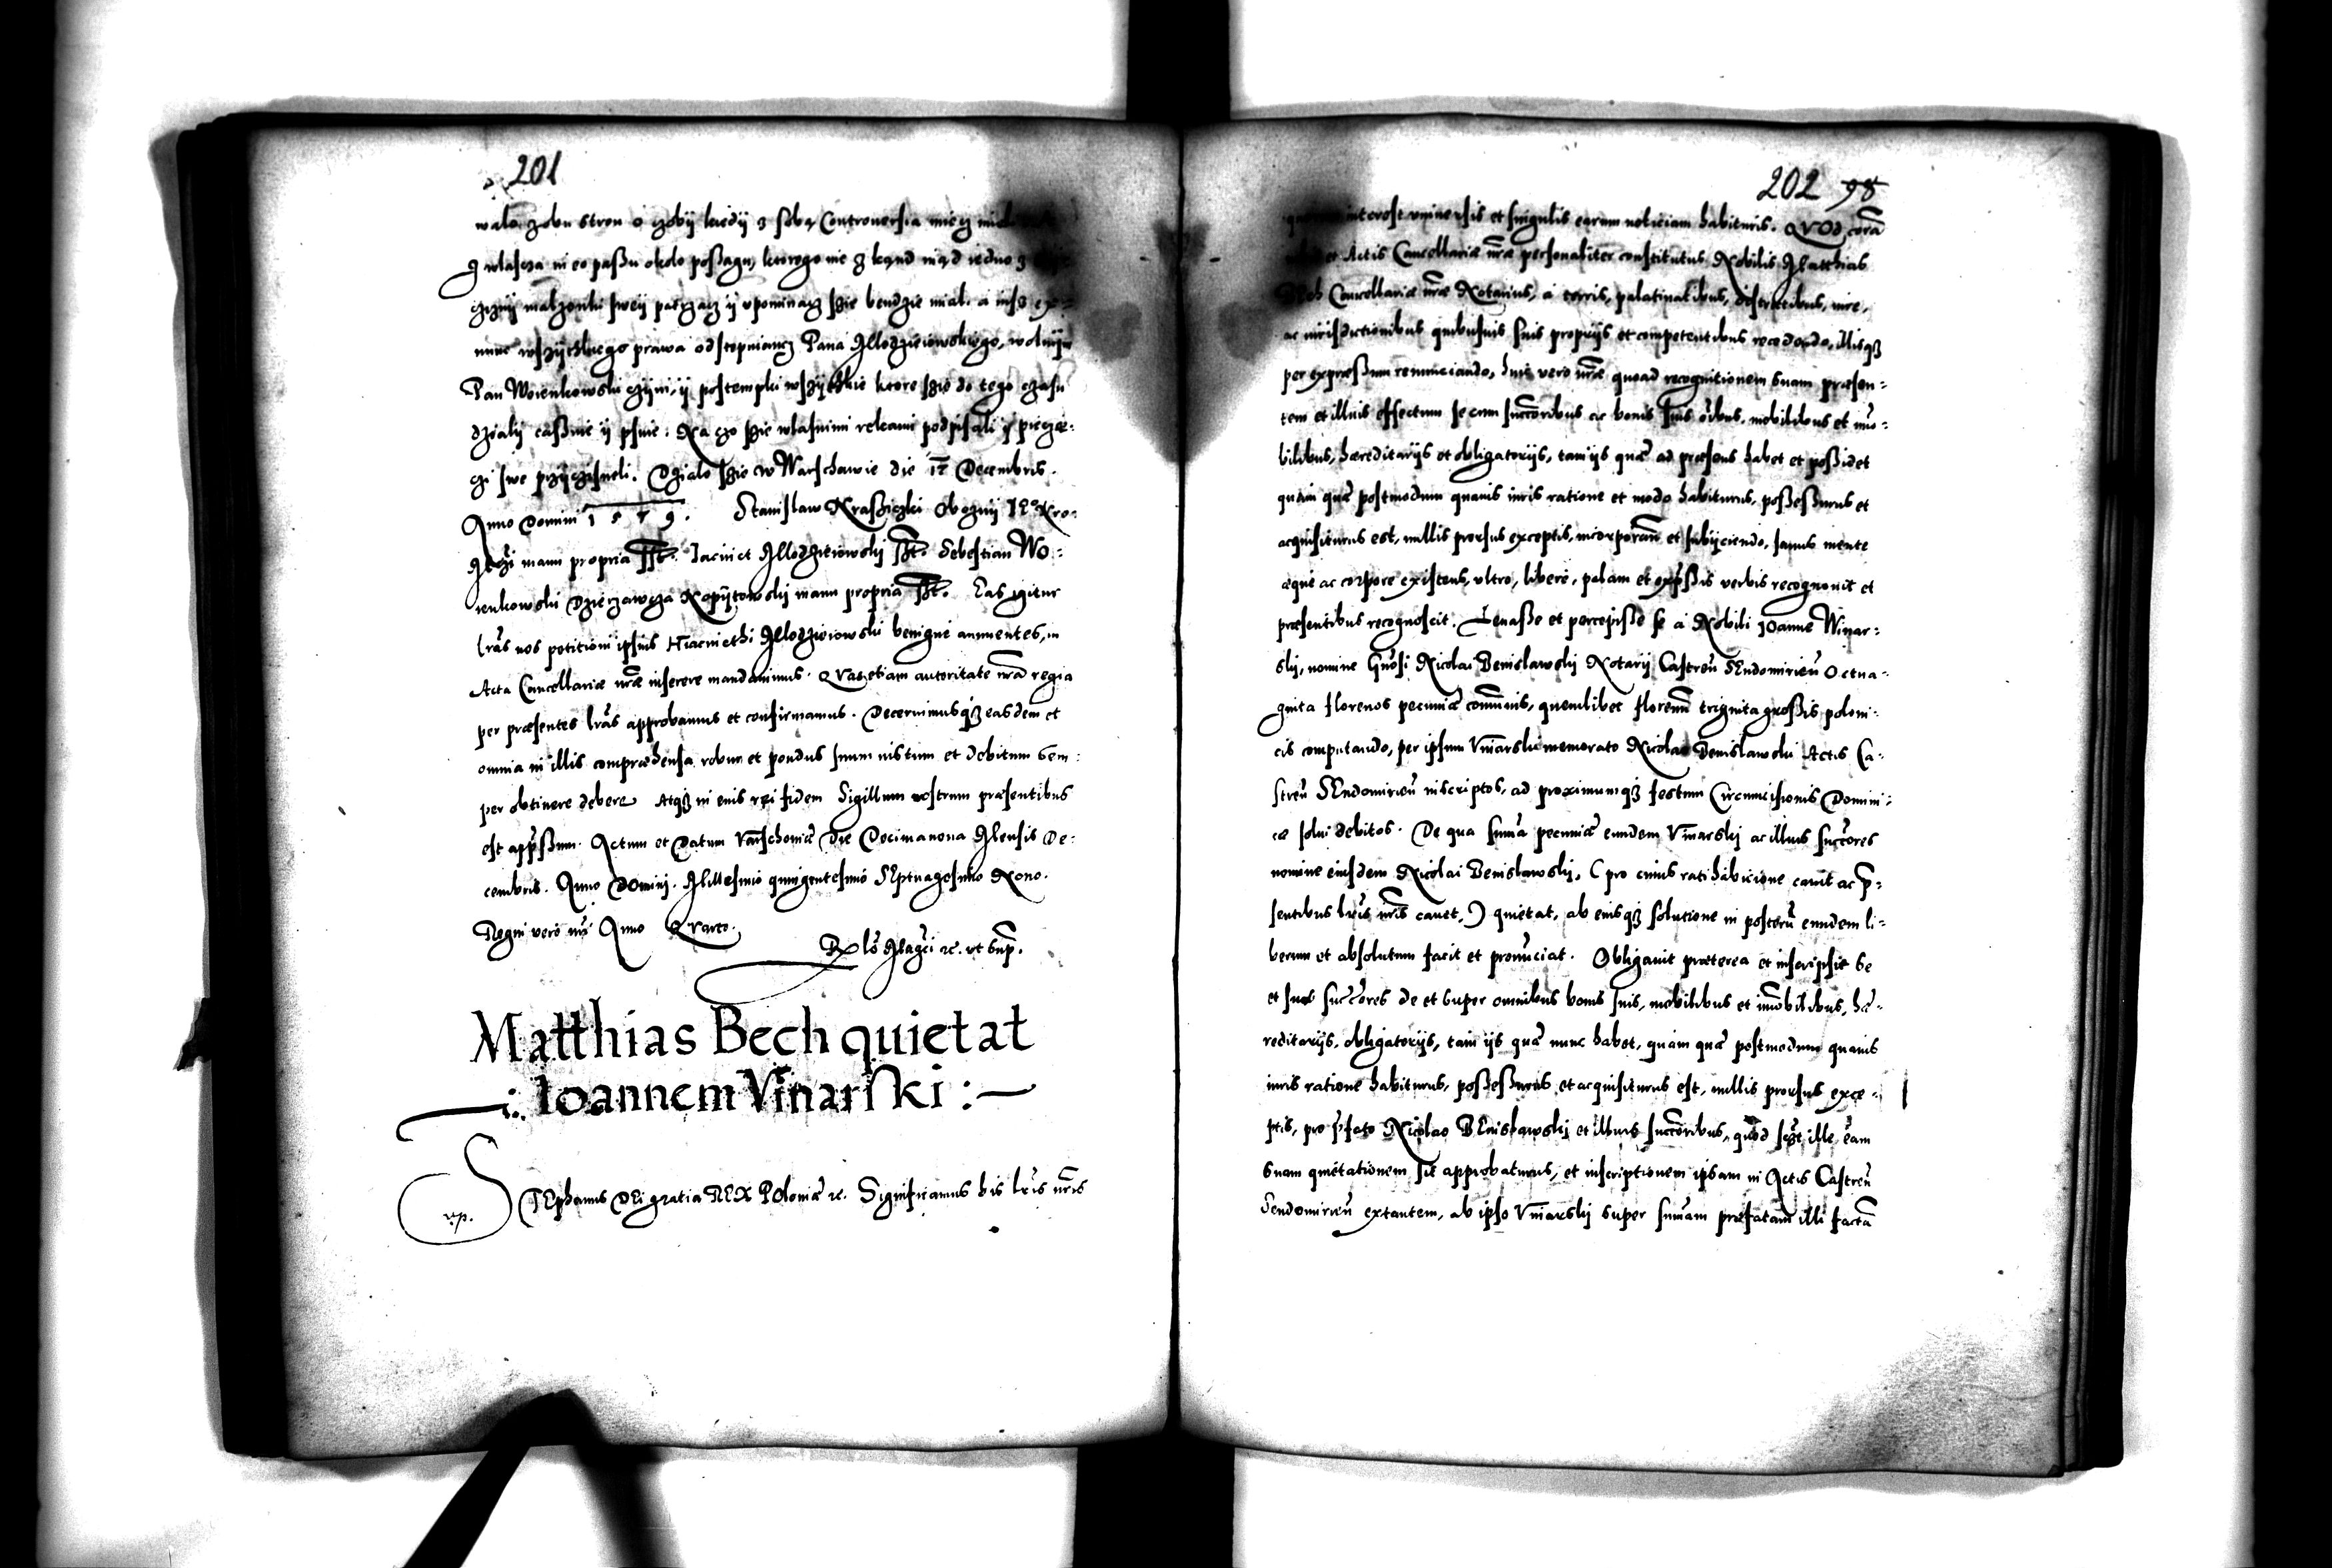 201
walo zobu stron o czoby kiedij z sobą Controuersia miecz
Zwlascza in eo passu około possagu, ktorego nie z kąnd ind iedno z
małzonki sweij patrzacz ij vpominacz szie bendzie miał. a insz
nune wszijtkiego prawa odstepuiancz Pana Młodzieiowskiego, wolnijm
Pan Woienkowski czijni, ij postempki wszijtkie ktore szie do tego czasu
dzialij cassuie ij psuie. Na czo szie własnimi rekami podpisali ij piecze-
czi swe przijczisneli. Dzialo szie w Warschawie die 17 Decembris.
Anno Domini 1579. Stanislaw Krassiczki Oboznij Kro:
manu propria sst. Iacinct Mlodzieiowskij sst. Sebestian Wo:
ienkowski Dzierzawcza Kopijtowskij manu propria sst. Eas igitur
lr̃as nos petitioni ipsius Hiacinethi Mlodzieiowski benigne annuentes, in
Acta Cancellariæ nr̃æ inserere mandauimus. QVas etiam autoritate nr̃a regia
per præsentes lr̃as approbamus et confirmamus. Decernimusqȝ easdem et
omnia in illis compræhensa robur et pondus suum iustum et debitum sem:
per obtinere debere Atqȝ in eius rei fidem Sigillum nostrum præsentibus
est app̃ssum. Actum et Datum Varschouiæ Die Decimanona Mensis De:
cembris. Anno Domini. Millesimo quingentesimo SEptuagesimo Nono.
Regni vero nr̃i Anno QVarto.
Rx̃ lo Magci rc. vt sup̃.
Matthias Bech quietat
Ioannem Vinarski
STEphanus DEi gratia REX POloniæ rc. Significamus his lr̃is nr̃is
vp.
202 98
interest vniuersis et singulis earum noticiam habituris. QVOd corã
Actis Cancellariæ nr̃æ personaliter constitutus Nobilis Matthias
Bech Cancellariæ nr̃æ Notarius, a terris, palatinatibus, districtibus, iure,
ac iurisdictionibus quibusuis suis proprijs et competentibus recedendo, illisqȝ
per expressum renunciando, huic vero nr̃æ quoad recognitionem suam præsen:
tem et illius effectum se cum succoribus ac bonis suis oĩbus, mobilibus et im̃o:
bilibus, hæreditarijs et obligatorijs, tam ijs quæ ad præsens habet et possidet
quàm quæ postmodum quauis iuris ratione et modo habiturus, possessurus et
acquisiturus est, nullis prorsus exceptis, incorporan̄ et subijciendo, sanus mente
æque ac corpore existens, vltro, libere, palam et exp̃ssis verbis recognouit et
præsentibus recognoscit. Leuasse et percepisse se à Nobili IOanne Winar:
skij, nomine Gñosi Nicolai Benislawskij Notarij Castren̄ SEndomirien̄ Octua-
ginta florenos pecuniæ com̃unis, quemlibet floren̄ triginta grossis poloni:
cis computando, per ipsum Vinarski memorato Nicolao Benislawski Actis Ca:
stren̄ SEndomirien̄ inscriptos, ad proximumqȝ festum Circumcisionis Domini:
cæ solui debitos. De qua sum̃a pecuniæ eundem Vinarskij ac illius succores
nomine eiusdem Nicolai Benislawskij, (pro cuius ratihabicione cauit ac p̃:
sentibus lr̃is nr̃is cauet,) quietat, ab eiusqȝ solutione in posterũ eundem li:
berum et absolutum facit et pronũciat. Obligauit præterea et inscripsit se
et suos succores de et super omnibus bonis suis, mobilibus et im̃obilibus, hæ-
reditarijs, obligatorijs, tam ijs quæ nunc habet, quàm quæ postmodum quauis
iuris ratione habiturus, possessurus et acquisiturus est, nullis prorsus exce:
ptis, pro p̃fato Nicolao BEnislawskij et illius succoribus, quod ille eam
suam quietationem sit approbaturus, et inscriptionem ipsam in Actis Castren̄
Sendomirien̄ extantem, ab ipso Vinarskij super sum̃am præfatam illi factã